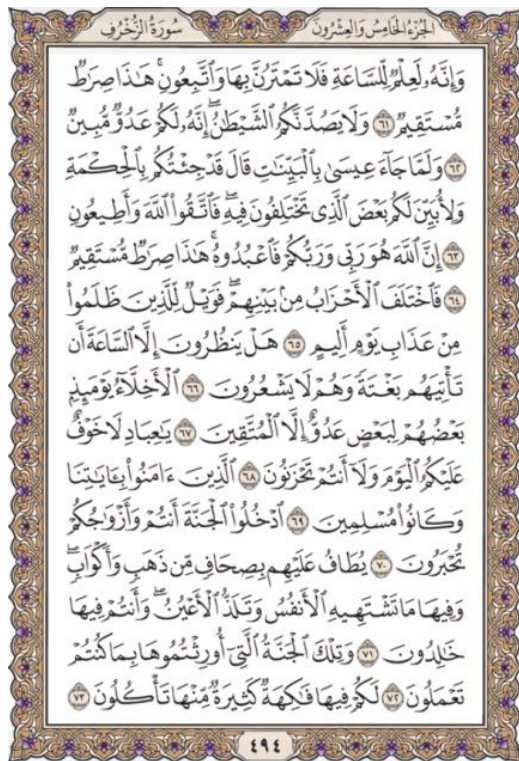 الجزء الخامس والعشرون
سورة الزخرف
وَإِنَّهُۥ لَعِلْمٌ لِّلسَّاعَةِ فَلَا تَمْتَرُنَّ بِهَا وَٱتَّبِعُونِۚ هَٰذَا صِرَٰطٌ
مُّسْتَقِيمٌ ٦١ وَلَا يَصُدَّنَّكُمُ ٱلشَّيْطَٰنُۖ إِنَّهُۥ لَكُمْ عَدُوٌّ مُّبِينٌ
٦٢ وَلَمَّا جَآءَ عِيسَىٰ بِٱلْبَيِّنَٰتِ قَالَ قَدْ جِئْتُكُم بِٱلْحِكْمَةِ
وَلِأُبَيِّنَ لَكُم بَعْضَ ٱلَّذِى تَخْتَلِفُونَ فِيهِۖ فَٱتَّقُوا۟ ٱللَّهَ وَأَطِيعُونِ
٦٣ إِنَّ ٱللَّهَ هُوَ رَبِّى وَرَبُّكُمْ فَٱعْبُدُوهُۚ هَٰذَا صِرَٰطٌ مُّسْتَقِيمٌ
٦٤ فَٱخْتَلَفَ ٱلْأَحْزَابُ مِنۢ بَيْنِهِمْۖ فَوَيْلٌ لِّلَّذِينَ ظَلَمُوا۟
مِنْ عَذَابِ يَوْمٍ أَلِيمٍ ٦٥ هَلْ يَنظُرُونَ إِلَّا ٱلسَّاعَةَ أَن
تَأْتِيَهُم بَغْتَةً وَهُمْ لَا يَشْعُرُونَ ٦٦ ٱلْأَخِلَّآءُ يَوْمَئِذٍۭ
بَعْضُهُمْ لِبَعْضٍ عَدُوٌّ إِلَّا ٱلْمُتَّقِينَ ٦٧ يَٰعِبَادِ لَا خَوْفٌ
عَلَيْكُمُ ٱلْيَوْمَ وَلَآ أَنتُمْ تَحْزَنُونَ ٦٨ ٱلَّذِينَ ءَامَنُوا۟ بِـَٔايَٰتِنَا
وَكَانُوا۟ مُسْلِمِينَ ٦٩ ٱدْخُلُوا۟ ٱلْجَنَّةَ أَنتُمْ وَأَزْوَٰجُكُمْ
تُحْبَرُونَ ٧٠ يُطَافُ عَلَيْهِم بِصِحَافٍ مِّن ذَهَبٍ وَأَكْوَابٍۖ
وَفِيهَا مَا تَشْتَهِيهِ ٱلْأَنفُسُ وَتَلَذُّ ٱلْأَعْيُنُۖ وَأَنتُمْ فِيهَا
خَٰلِدُونَ ٧١ وَتِلْكَ ٱلْجَنَّةُ ٱلَّتِىٓ أُورِثْتُمُوهَا بِمَا كُنتُمْ
تَعْمَلُونَ ٧٢ لَكُمْ فِيهَا فَٰكِهَةٌ كَثِيرَةٌ مِّنْهَا تَأْكُلُونَ ٧٣
٤٩٤